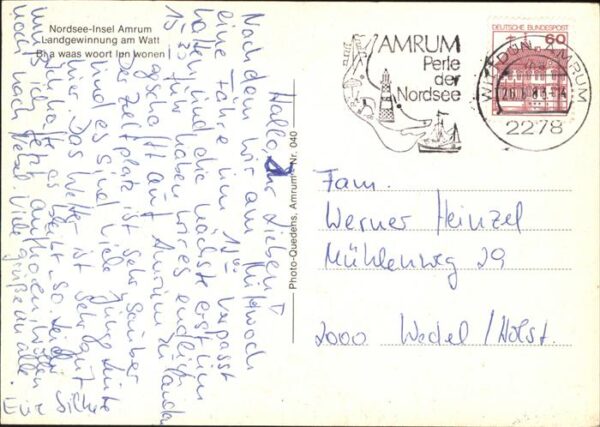 Nordsee-Insel Amrum
Landgewinnung am Watt
Bi a waas woort lun wonen
AMRUM
Perle
der
Nordsee
DEUTSCHE BUNDESPOST
60
AMRUM
2278
Photo-Quedens, Amrum Nr. 040
Fam.
Werner Heinzel
Mühlenweg 29
2000 Wedel/Holst.
Hallo, Ihr Lieben!
Nachdem wir am Mittwoch
eine Fähre um verpasst
hatten und die nächste erst um
fuhr, haben wir es endlich
geschafft auf Amrum zu landen
Der Zeltplatz ist sehr sauber
und es sind viele junge Leute
hier. Das Wetter ist sehr gut
ich hoffe es bleibt so. Leider
muß ich jetzt aufhören, wir wollen
noch nach Viele Grüße an alle.
Eure Silke